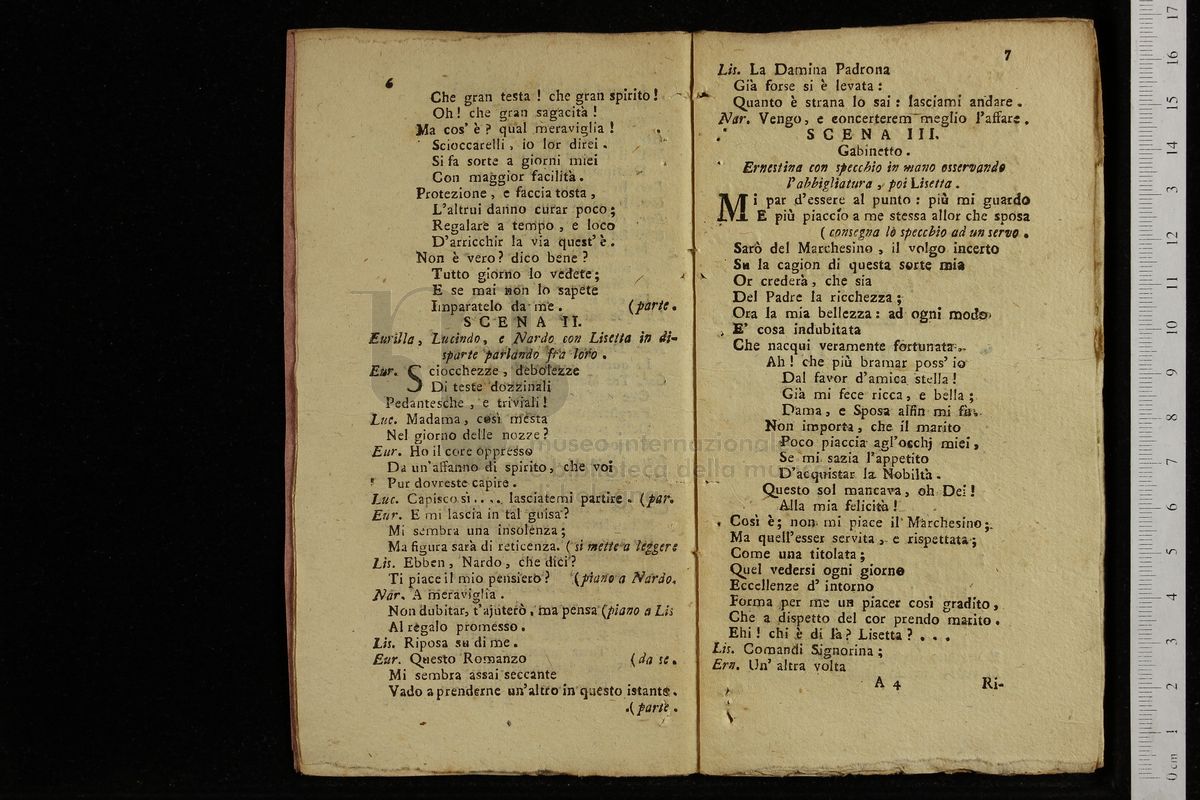 6
Che gran testa ! che gran spirito !
Oh ! che gran sagacità !
Ma cos' è ? qual meraviglia !
Scioccarelli , io lor direi .
Si fa sorte a giorni miei
Con maggior facilità .
Protezione , e faccia tosta ,
L'altrui danno curar poco ;
Regalare a tempo , e loco
D'arricchir la via quest' è .
Non è vero ? dico bene ?
Tutto giorno lo vedete ;
E se mai non lo sapete
Imparatelo da me . (parte .
SCENA II.
Eurilla , Lucindo , e Nardo con Lisetta in di-
sparte parlando fra loro .
Eur. Sciocchezze , debolezze
Di teste dozzinali
Pedantesche , e triviali !
Luc. Madama , così mesta
Nel giorno delle nozze ?
Eur. Ho il core oppresso
Da un'affanno di spirito , che voi
Pur dovreste capire .
Luc. Capisco sì . . . . lasciatemi partire . (par.
Eur. E mi lascia in tal guisa ?
Mi sembra una insolenza ;
Ma figura sarà di reticenza. ( si mette a leggere
Lis. Ebben , Nardo , che dici ?
Ti piace il mio pensiero ? (piano a Nardo.
Nar. A meraviglia .
Non dubitar, t'ajuterò , ma pensa (piano a Lis
Al regalo promesso .
Lis. Riposa su di me .
Eur. Questo Romanzo (da se .
Mi sembra assai seccante
Vado a prenderne un'altro in questo istante .
(parte .
7
Lis. La Damina Padrona
Già forse si è levata :
Quanto è strana lo sai : lasciami andare .
Nar. Vengo , e concerterem meglio l'affare .
SCENA III.
Gabinetto .
Ernestina con specchio in mano osservando
l'abbigliatura , poi Lisetta .
Mi par d'essere al punto : più mi guardo
E più piaccio a me stessa allor che sposa
( consegna lo specchio ad un servo .
Sarò del Marchesino , il volgo incerto
Su la cagion di questa sorte mia
Or crederà , che sia
Del Padre la ricchezza ;
Ora la mia bellezza : ad ogni modo
E' cosa indubitata
Che nacqui veramente fortunata .
Ah ! che più bramar poss' io
Dal favor d'amica stella !
Già mi fece ricca , e bella ;
Dama , e Sposa alfin mi fa .
Non importa , che il marito
Poco piaccia agl'occhj miei ,
Se mi sazia l'appetito
D'acquistar la Nobiltà .
Questo sol mancava , oh Dei !
Alla mia felicità !
Così è ; non mi piace il Marchesino ;
Ma quell'esser servita , e rispettata ;
Come una titolata ;
Quel vedersi ogni giorno
Eccellenze d' intorno
Forma per me un piacer così gradito ,
Che a dispetto del cor prendo marito .
Ehi ! chi è di là ? Lisetta ? . . .
Lis. Comandi Signorina ;
Ern. Un' altra volta
A 4 Ri-
museo internazionale
biblioteca della musica
0 cm 1 2 3 4 5 6 7 8 9 10 11 12 13 14 15 16 17